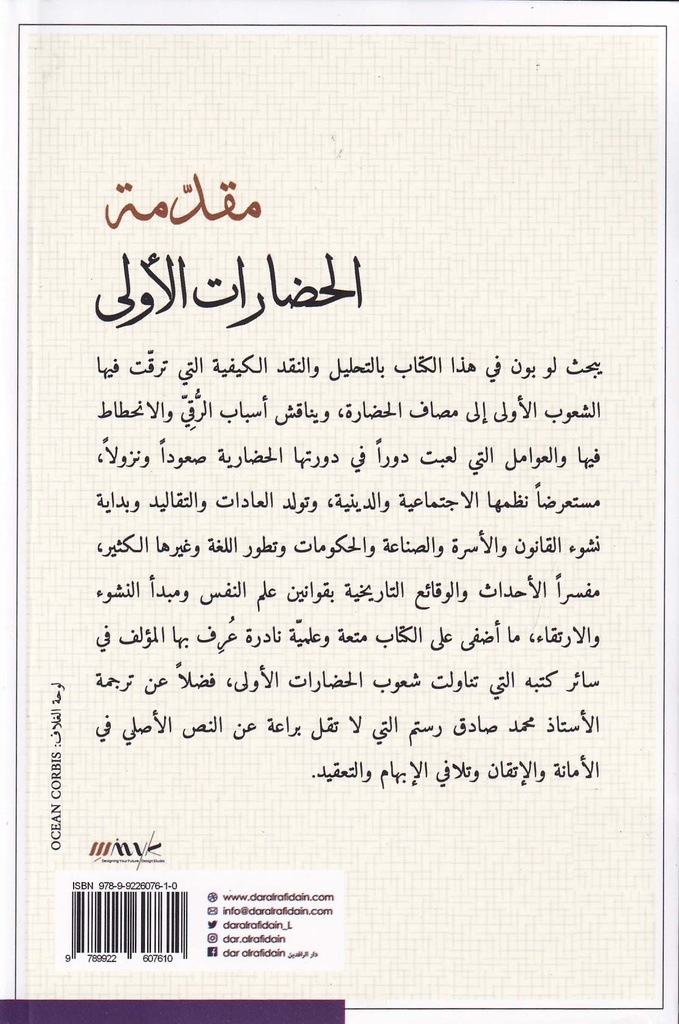 مقدّمة
الحضارات الأولى
يبحث لو بون في هذا الكتاب بالتحليل والنقد الكيفية التي ترقّت فيها
الشعوب الأولى إلى مصاف الحضارة، ويناقش أسباب الرُّقِيّ والانحطاط
فيها والعوامل التي لعبت دوراً في دورتها الحضارية صعوداً ونزولاً،
مستعرضاً نظمها الاجتماعية والدينية، وتولد العادات والتقاليد وبداية
نشوء القانون والأسرة والصناعة والحكومات وتطور اللغة وغيرها الكثير،
مفسراً الأحداث والوقائع التاريخية بقوانين علم النفس ومبدأ النشوء
والارتقاء، ما أضفى على الكتاب متعة وعلميّة نادرة عُرِف بها المؤلف في
سائر كتبه التي تناولت شعوب الحضارات الأولى، فضلاً عن ترجمة
الأستاذ محمد صادق رستم التي لا تقل براعة عن النص الأصلي في
الأمانة والإتقان وتلافي الإبهام والتعقيد.
لوحة الغلاف: OCEAN CORBIS
Designing Your Future Design Studio
ISBN 978-9-9226076-1-0
9 789922 607610
www.daralrafidain.com
info@daralrafidain.com
daralrafidain_L
dar.alrafidain
dar alrafidain دار الرافدين